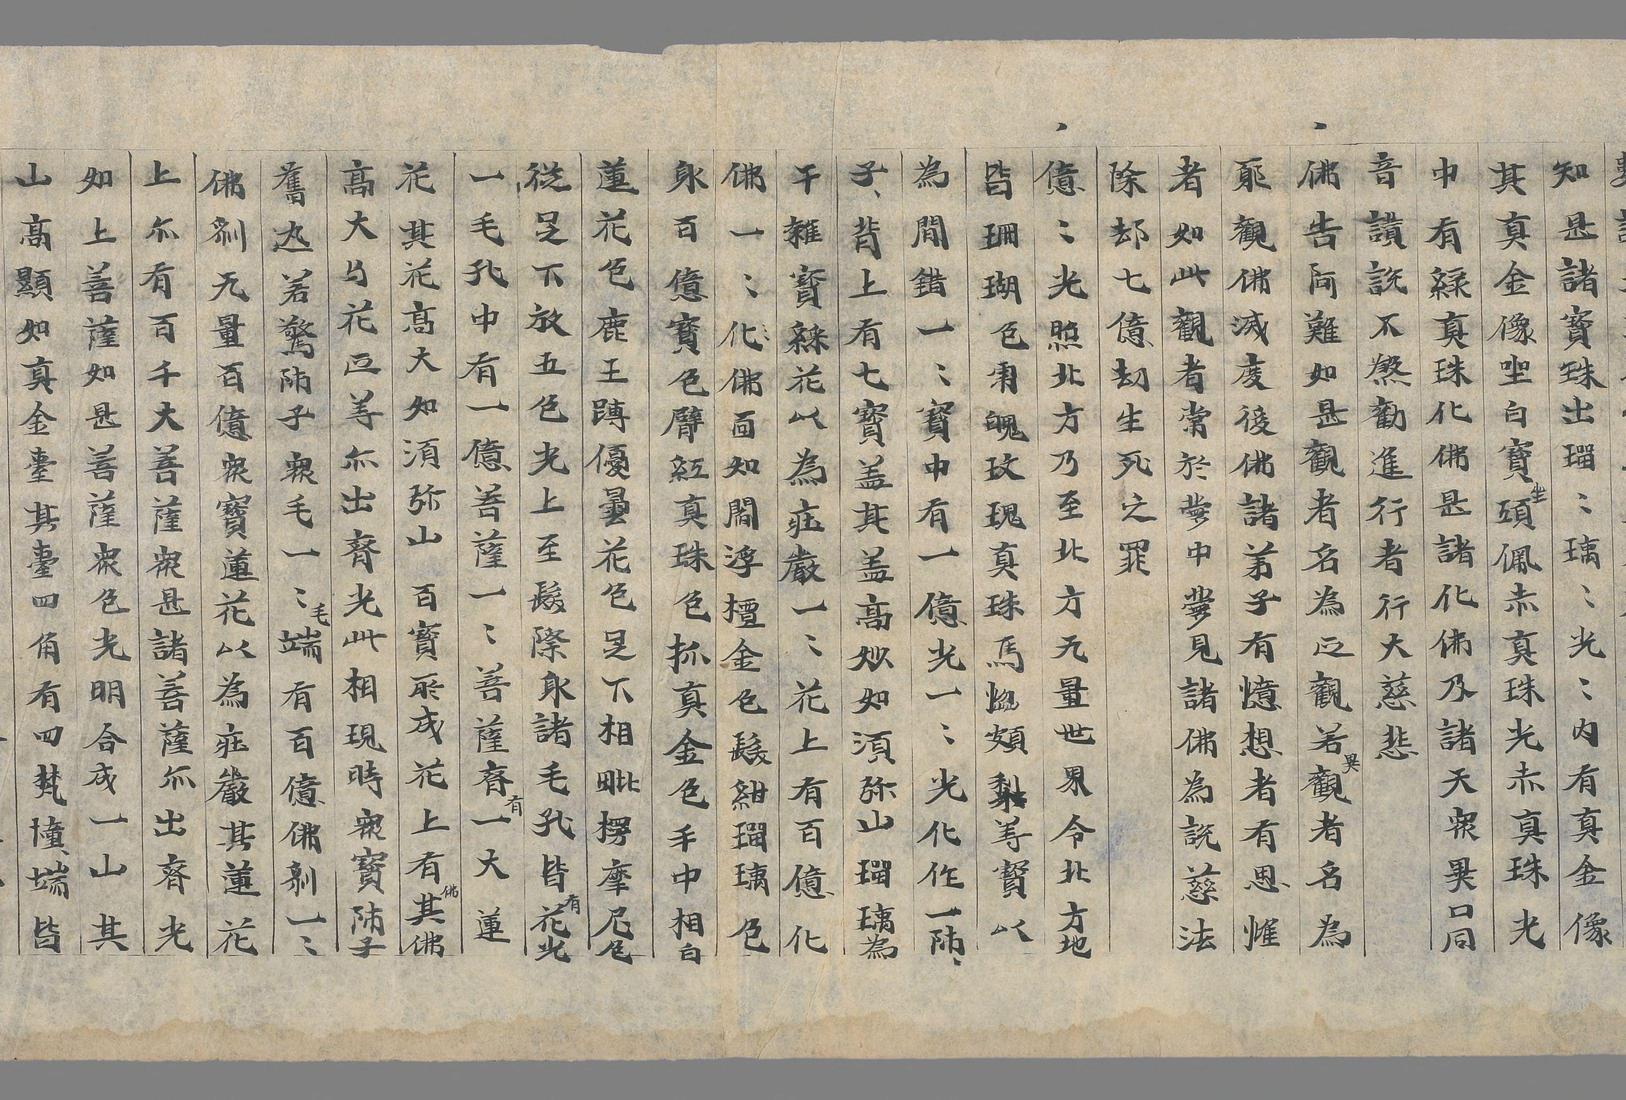 知是諸寶珠出瑠〻璃〻光〻內有真金像
其真金像坐白寶頭坐佩赤真珠光赤真珠光
中有綠真珠化佛是諸化佛乃諸天衆異口同
音讃說不煞勸進行者行大慈悲
佛告阿難如是觀者名為正觀若異觀者名為
耶觀佛滅度後佛諸弟子有憶想者有思惟
者如此觀者常於夢中夢見諸佛為說慈法
除却七億劫生死之罪
億〻光照北方乃至北方无量世界令北方地
皆珊瑚色用瑰玫瑰真珠馬惱頗梨等寶以
為間錯一〻寶中有一億光一〻光化作一師〻
子、背上有七寶盖其盖高妙如須弥山瑠璃為
千雜寶綵花以為莊嚴一〻花上有百億化
佛一〻化佛面如閻浮檀金色髮紺瑠璃色
身百億寶色臂紅真珠色抓真金色手中相白
蓮花色鹿王蹲優曇花色足下相毗楞摩尼色
從足下放五色光上至髮際身諸毛孔皆有花光
一毛孔中有一億菩薩一〻菩薩齊有一大蓮
花其花高大如須弥山百寶所成花上有佛其佛
高大与花正等亦出齊光此相現時衆寶師子
奮迅若驚師子衆毛一〻毛端有百億佛剎一〻
佛剎无量百億衆寶蓮花以為莊嚴其蓮花
上亦有百千大菩薩衆是諸菩薩亦出齊光
如上菩薩如是菩薩衆色光明合成一山其
山高顯如真金臺其臺四角有四梵憧、端皆